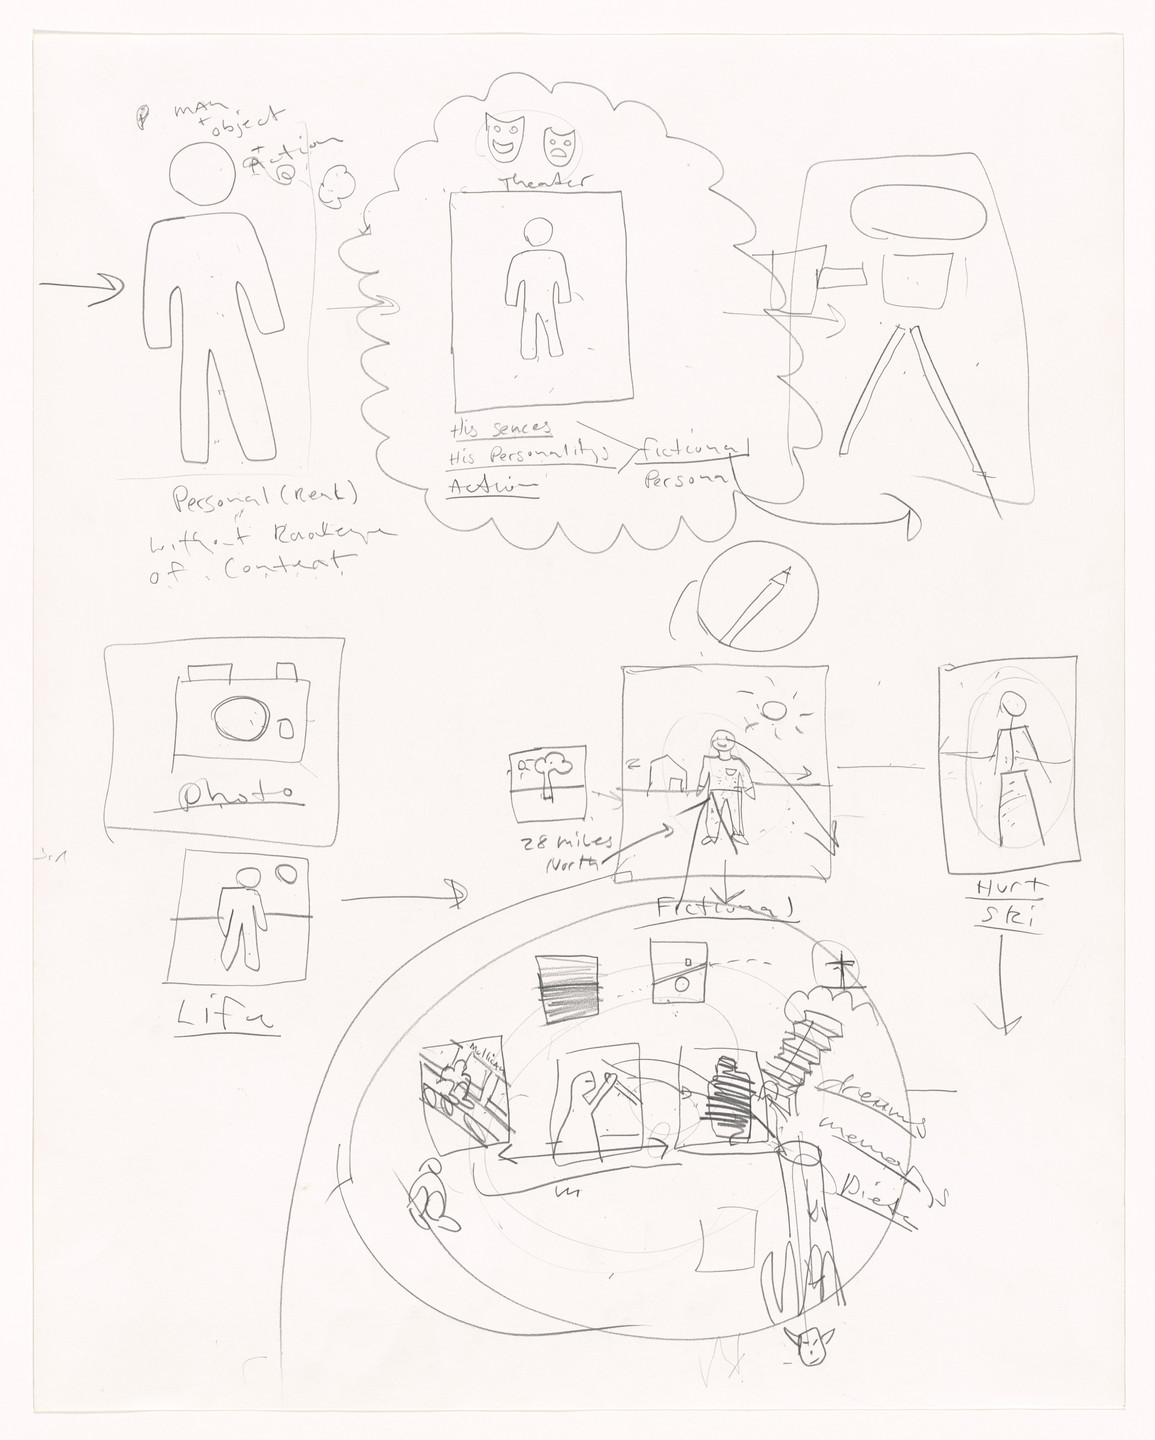 man
+ object
+
Action
Theater
His sences
His Personalitys
Action
fictional
Persona
Personal (Real)
without Knowledge
of Context
Photo
Life
28 miles
North
Fictional
Hurt
Ski
dreams
memorys